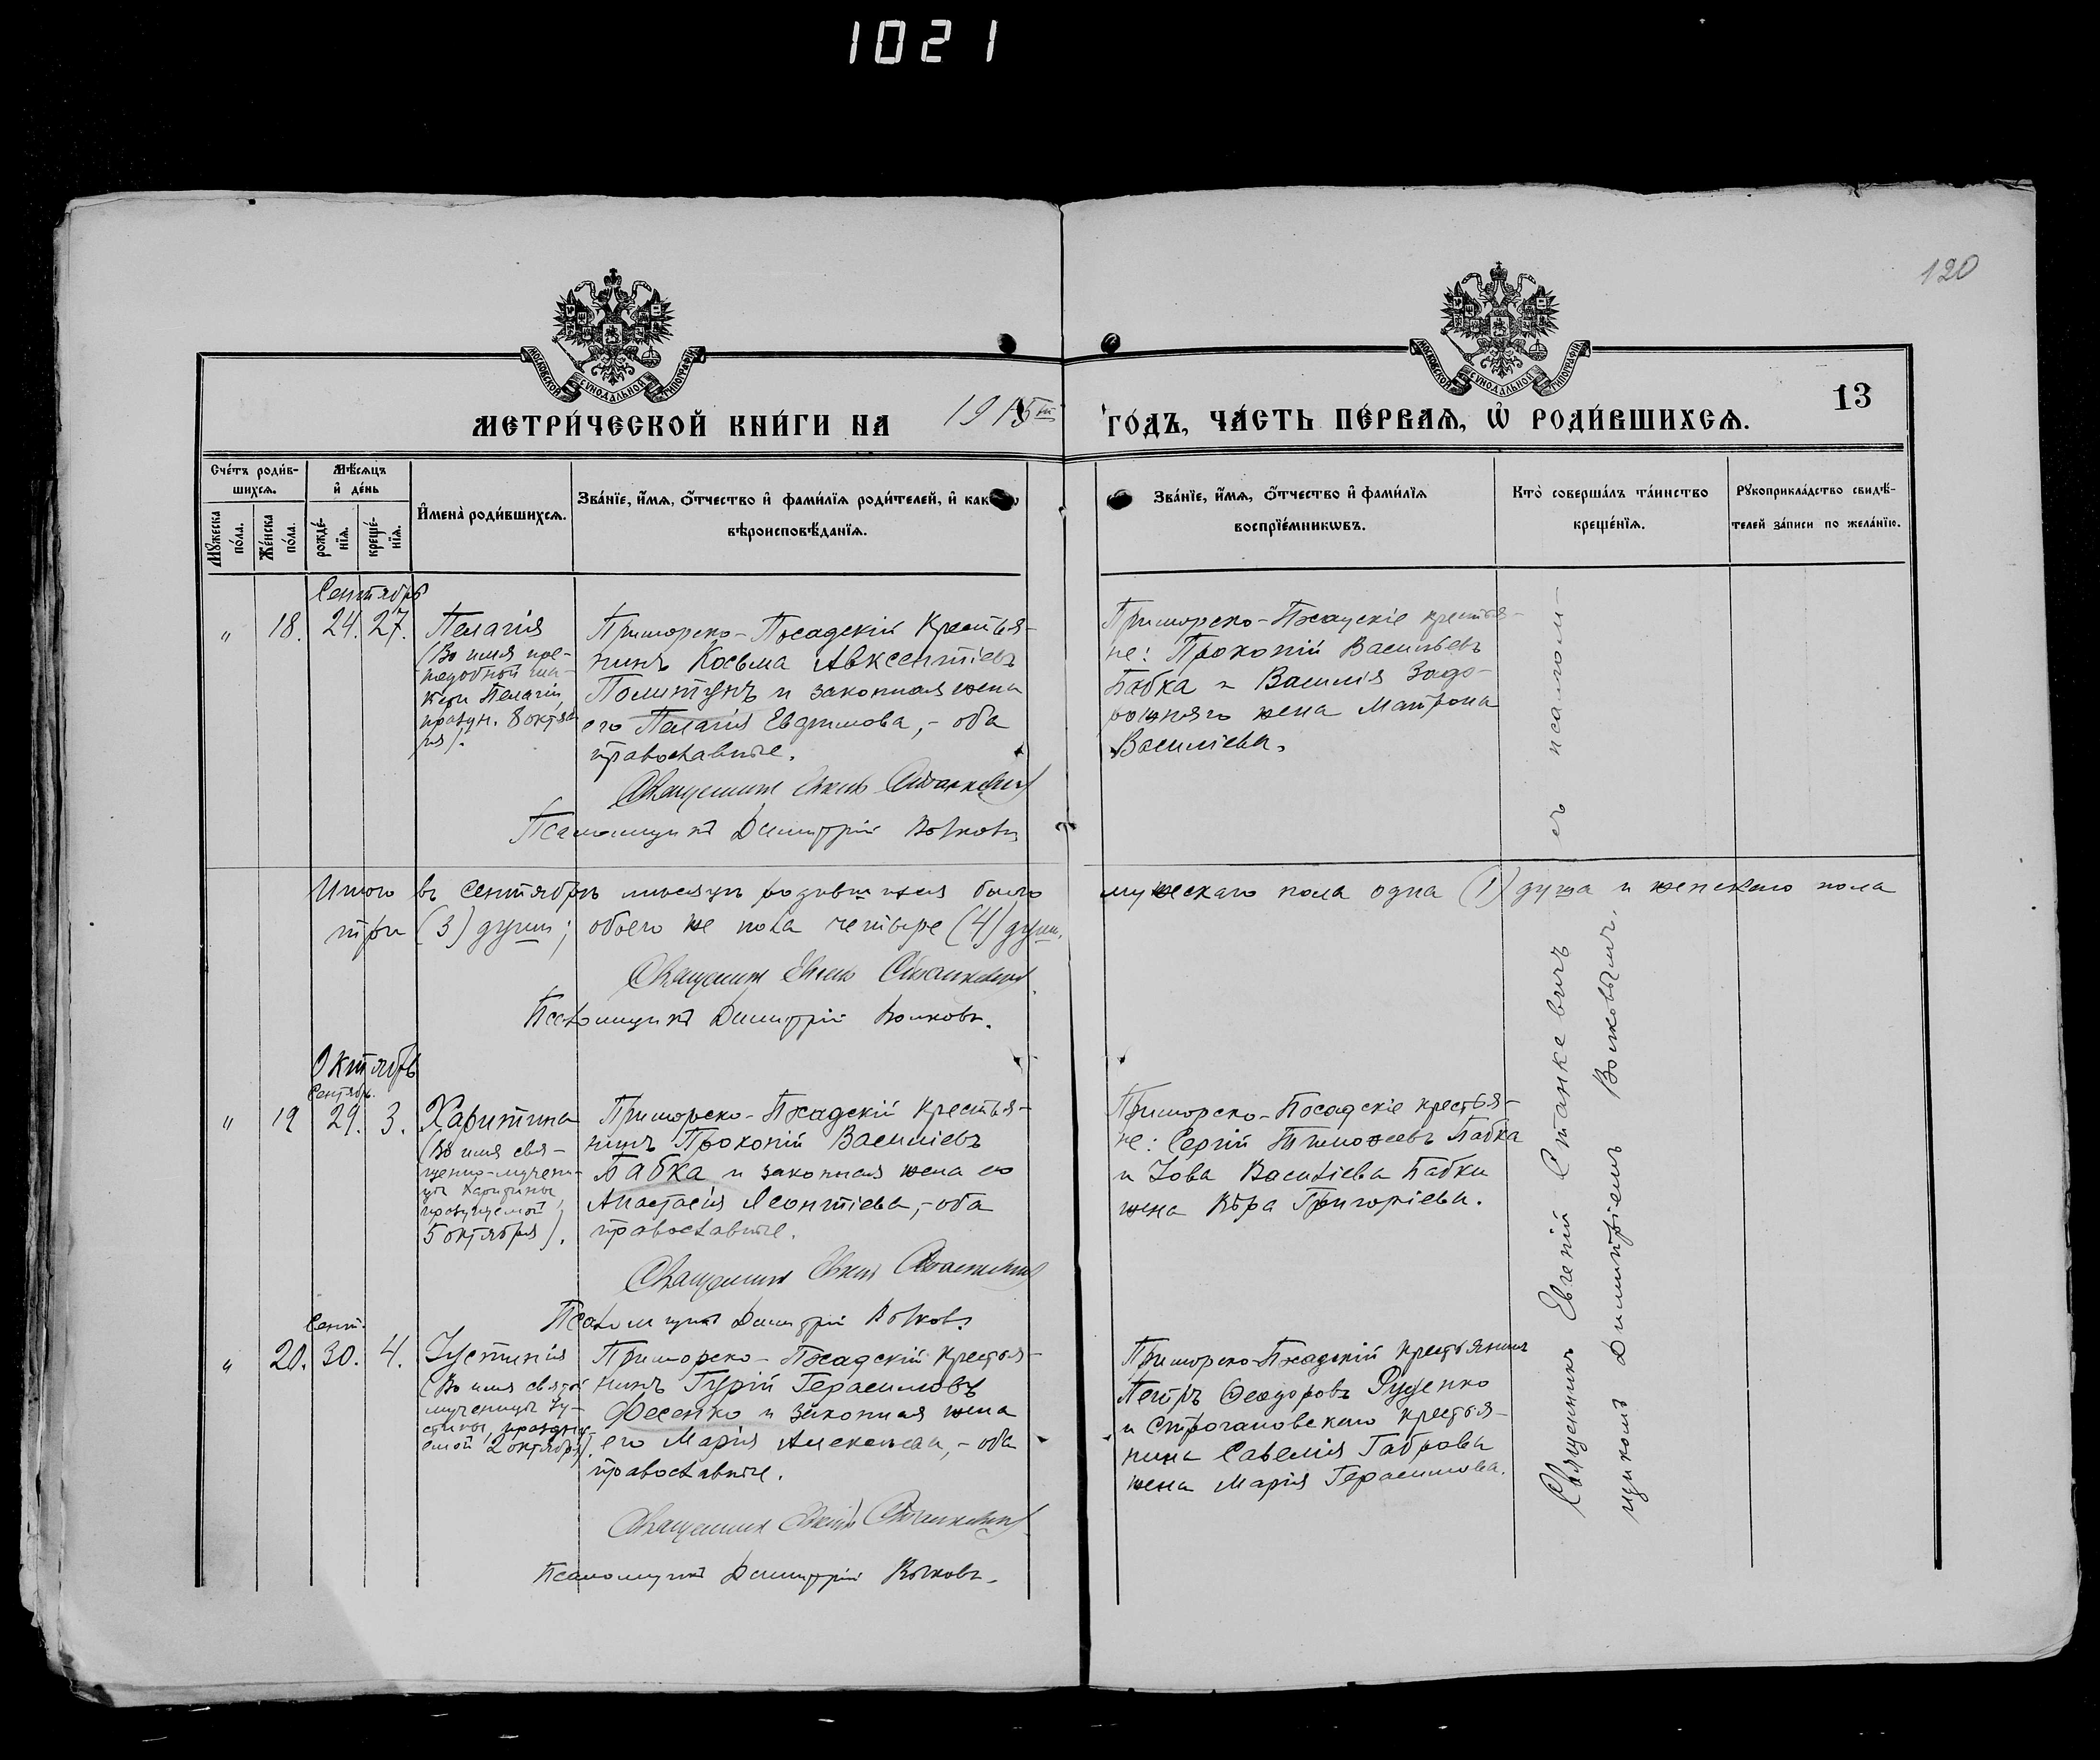 1021
120
МОСКОВСКОЙ СѴНОДАЛЬНОЙ ТИПОГРАФІИ
МОСКОВСКОЙ СѴНОДАЛЬНОЙ ТИПОГРАФІИ
13
МЕТРИ́ЧЕСКОЙ КНИ́ГИ НА 1915 го́дъ, ча́сть пе́рвая, ѡ҆ роди́вшихся.
Сче́тъ роди́в-
шихся.
Мꙋ́жеска
по́ла.
Же́нска
по́ла.
Мѣ́сяцъ
и҆ де́нь
рожде́-
нїя.
креще́-
нїя.
И҆мена̀ роди́вшихся.
Зва́нїе, и҆́мя, ѻ҆́тчество и҆ фами́лїя роди́телей, и҆ как
вѣроисповѣ́данїя.
Зва́нїе, и҆́мя, ѻ҆́тчество и҆ фами́лїя
воспрїе́мникѡвъ.
Кто̀ соверша́лъ та́инство
креще́нїя.
Рꙋкоприкла́дство свидѣ́-
телей за́писи по жела́нїю.
Сентябрь
" 18. 24. 27.
Пелагія
(Во имя пре-
подобной ма-
тери Пелагіи,
празун. 8 октяб
ря).
Приморско-Посадскій Крестья-
нинъ Косьма Авксентіевъ
Политунъ и законная жена
его Пелагія Евфимова, - оба
православные.
Священник Евгеній Станкевич
Псаломщикъ Димитрій Волковъ
Приморско-Посадскіе крестья-
не: Прокопій Васильевъ
Бабка и Василія Задо-
рожняго жена Матрона
Василіева.
Итого въ Сентябрѣ мѣсяцѣ родившихся было мужескаго пола одна (1) душа и женскаго пола
три (3) души; обоего же пола четыре (4) души.
Священник Евгеній Станкевич
Псаломщикъ Димитрій Волковъ.
Октябрь
Сентябрь.
" 19 29. 3.
Харитина
(Во имя свя-
щенно-мучени-
цы Харитины,
празуцемой
5 октября).
Приморско-Посадскій крестья-
нинъ Прокопій Василіевъ
Бабка и законная жена его
Анастасія Леонтіева, - оба
православные.
Священник Евгеній Станкевич
Псаломщикъ Димитрій Волковъ
Приморско-Посадскіе крестья-
не: Сергій Тимофеевъ Бабка
и Іова Василіева Бабки
жена Вѣра Григоріева.
Сент.
" 20. 30. 4.
Іустинія
(Во имя святой
мученицы Іу-
стины, праздну-
емой 2 октября).
Приморско-Посадскій крестья-
нинъ Гурій Герасимовъ
Фесенко и законная жена
его Марія Алексеева, - оба
православные.
Священник Евгеній Станкевич
Псаломщикъ Димитрій Волковъ.
Приморско-Посадскій крестьянинъ
Петръ Феодоровъ Руденко
и Строгановскаго крестья-
нина Савелія Гаврова
жена Марія Герасимова.
Священникъ Евгеній Станкевичъ съ псалом-
щикомъ Димитріемъ Волковымъ.